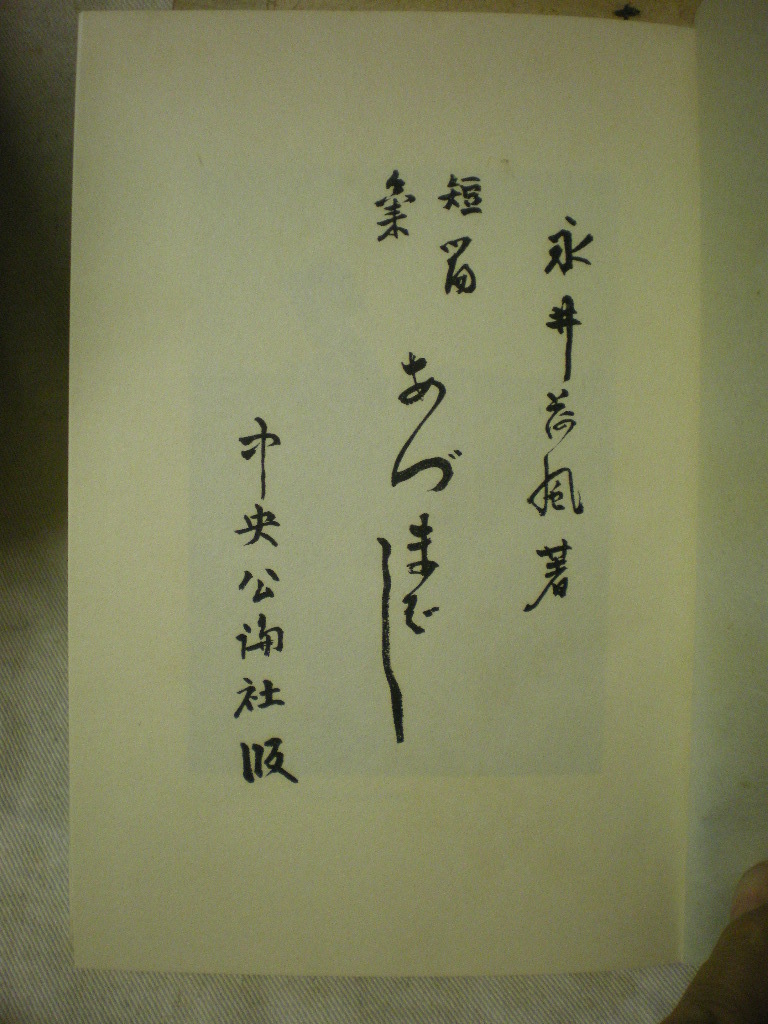 永井荷風著
短篇集
あづまばし
中央公論社版